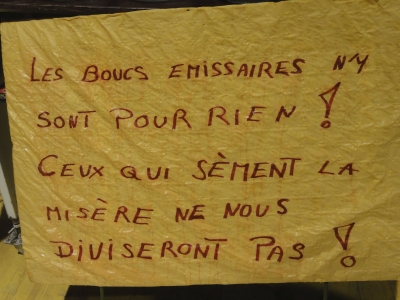 LES BOUCS EMISSAIRES N'Y
SONT POUR RIEN !
CEUX QUI SÈMENT LA
MISÈRE NE NOUS
DIVISERONT PAS !